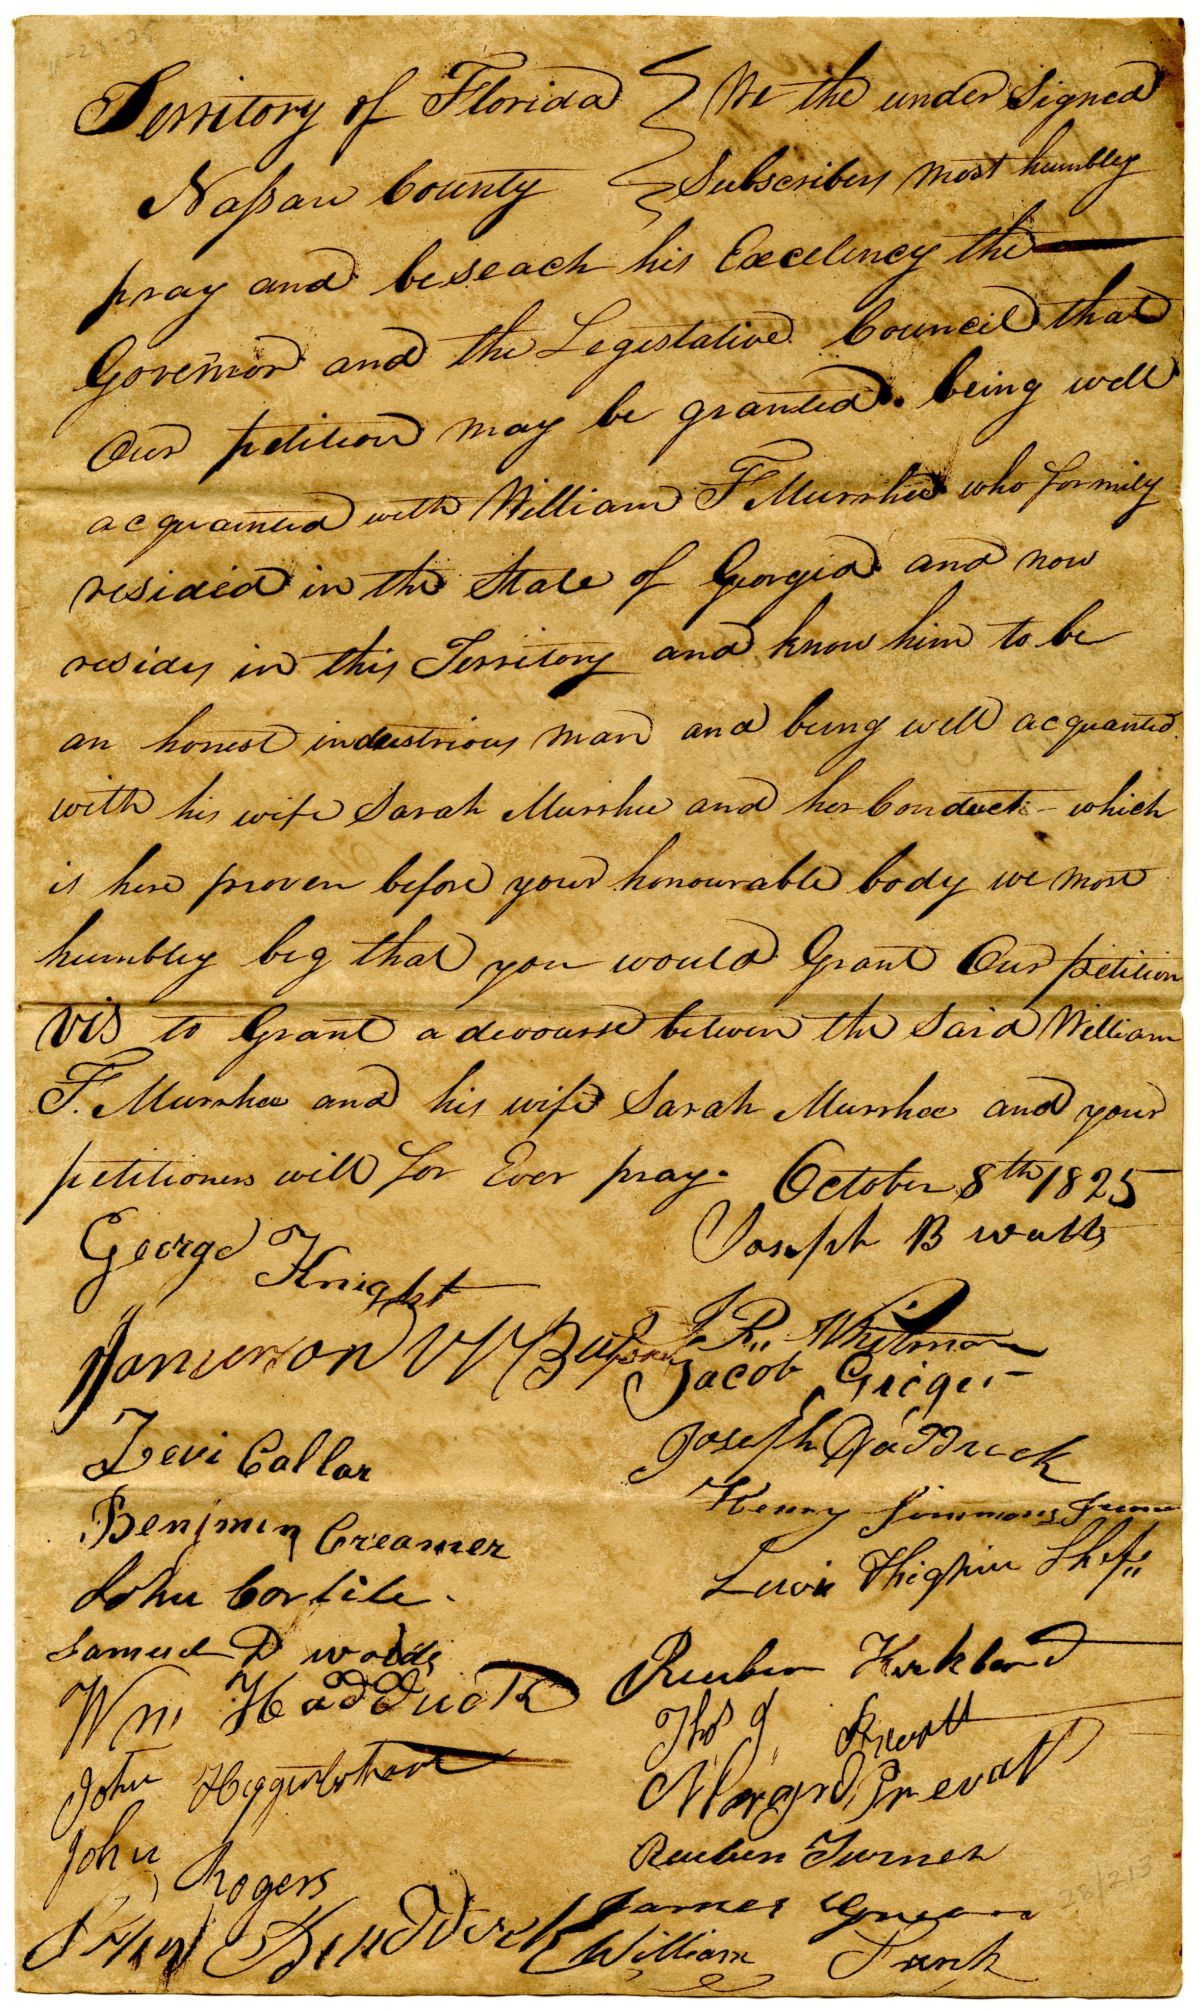 Territory of Florida We the under Signed
Nassau County Subscribers most humbley
pray and beseach his Excelency the
Governor and the Legestative Council that
Our petition may be granted. being well
acquainted with William F Murrhee who formily
resided in the State of Georgia and now
resides in this Territory and know him to be
an honest industrious man and being well acquanted
with his wife Sarah Murrhee and her Conduct - which
is here proven before your honourable body we most
humbley beg that you would Grant Our petition
vis to Grant a devourse betwen the Said William
F. Murrhee and his wife Sarah Murrhee and your
petitioners will for Ever pray. October 8th 1825
George Knight
Joseph B watts
W
J. R. Whitman
Jacob Grieger
Levi Collar
Joseph Hadduck
Henry Simmons
Benjmin Creamer
John
Samuel D woods
Reuben Kirkland
Wm Hadduck
Thos J Prevatt
John Higginbotham
Prevatt
John Rogers
Reuben Turner
James Green
William